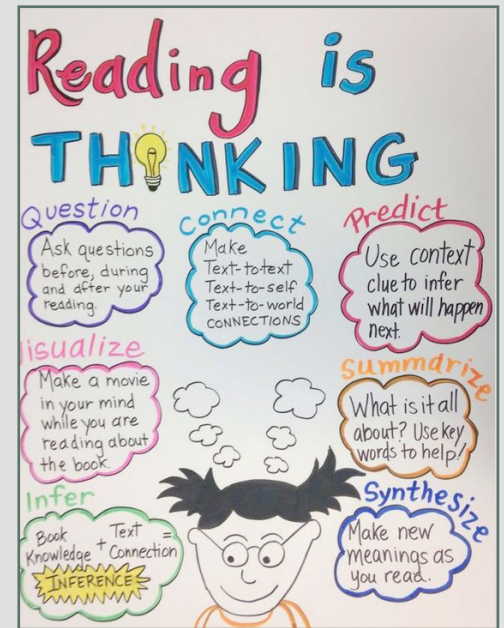 Reading is
THINKING
Question
Ask questions
before, during
and after your
reading.
Connect
Make
Text-to-text
Text-to-self
Text-to-world
CONNECTIONS
Predict
Use context
clue to infer
what will happen
next.
isualize
Make a movie
in your mind
while you are
reading about
the book.
Summarize
What is it all
about? Use key
words to help!
Infer
Book Knowledge + Text Connection =
INFERENCE
Synthesize
Make new
meanings as
you read.